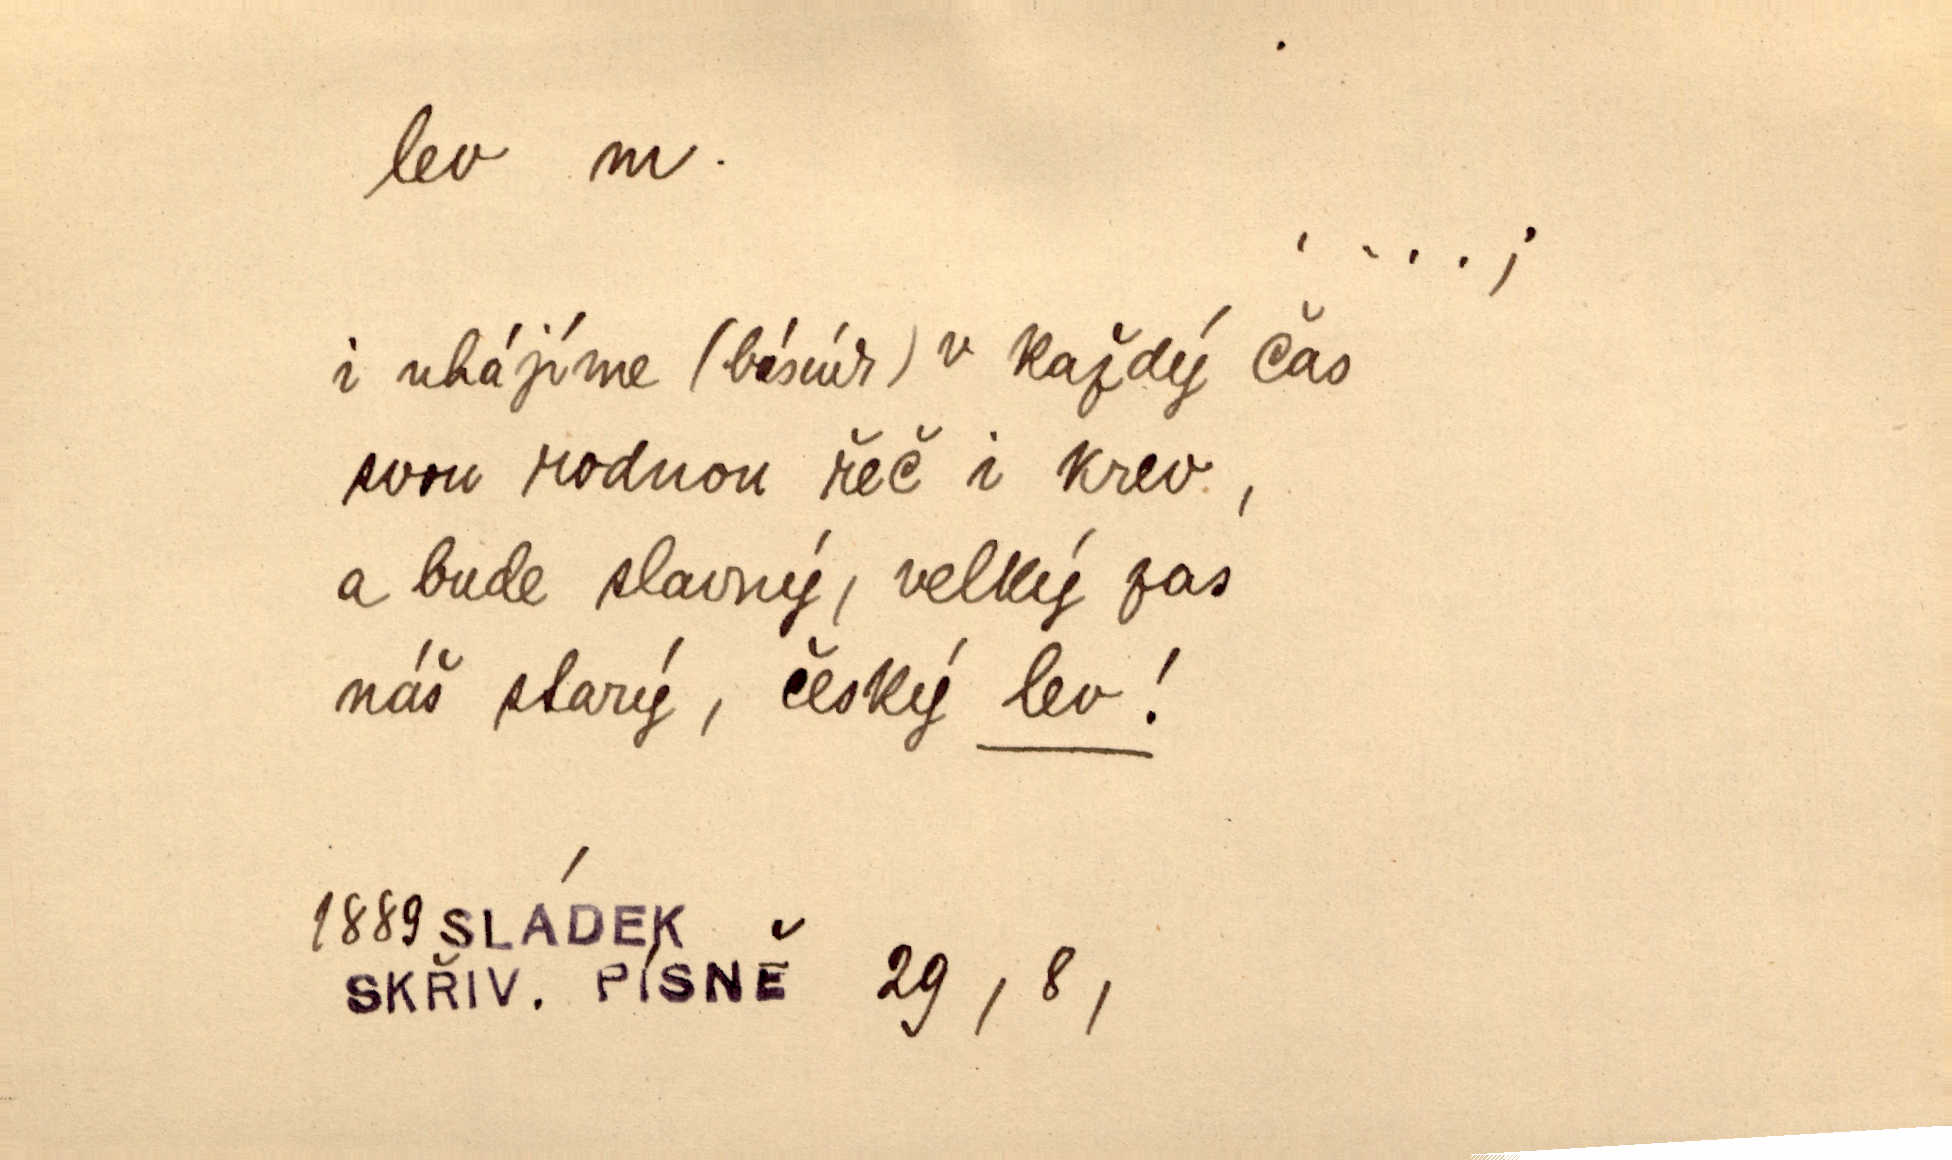 lev m.
i uhájíme (básník) v každý čas
svou rodnou řeč i krev,
a bude slavný, velký zas
náš starý, český lev!
1889 SLÁDEK
SKŘIV. PÍSNĚ 29, 8,